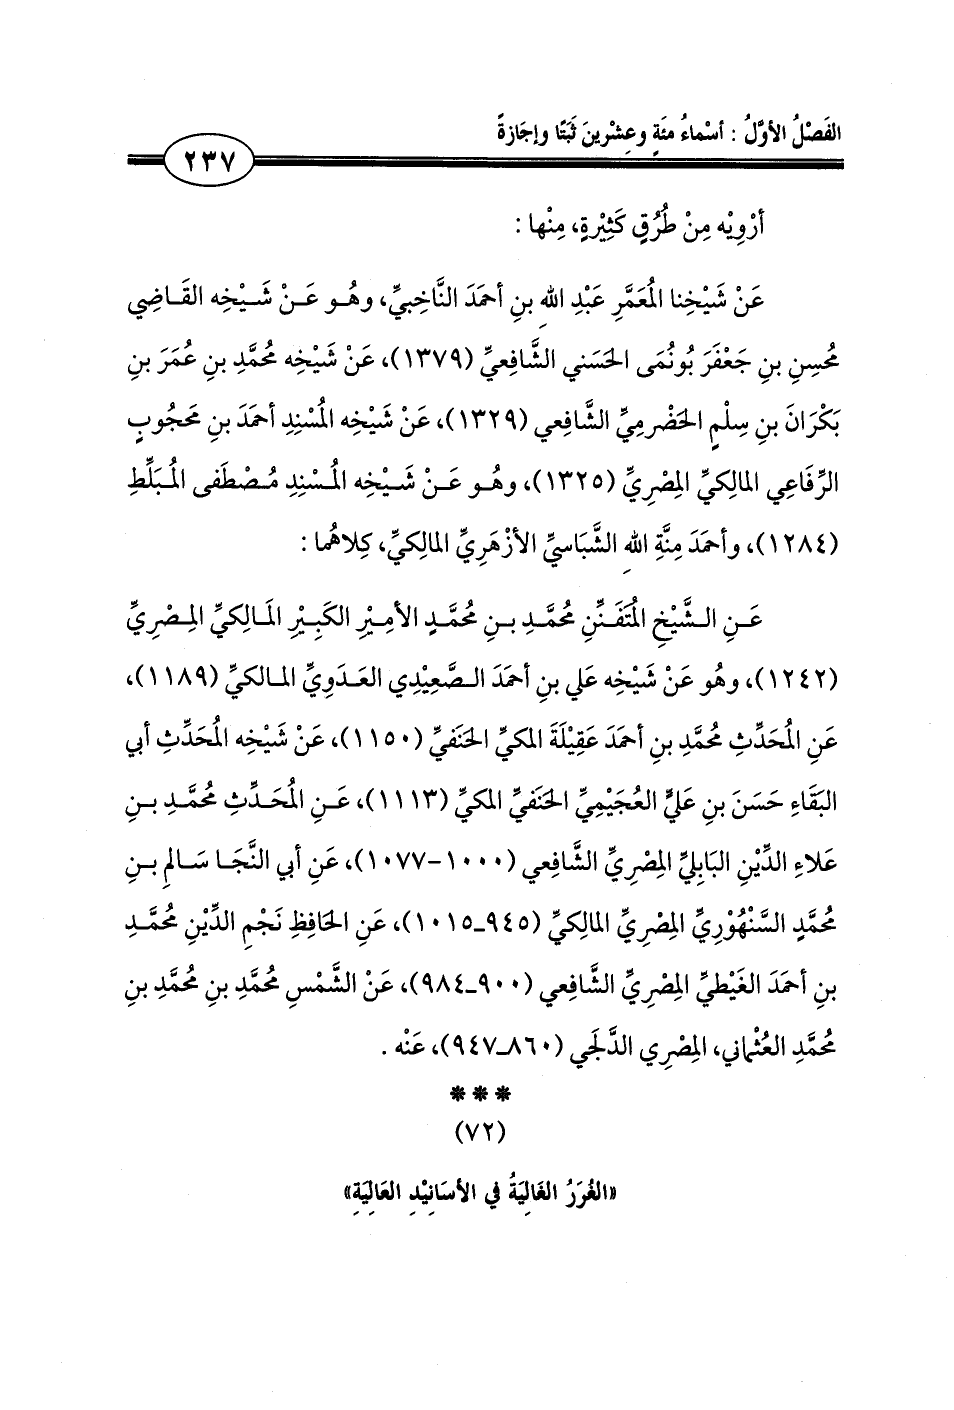 الفَصْلُ الأوَّلُ : أسْماءُ مئَةٍ وعِشْرينَ ثَبَتًا وإجَازةً
٢٣٧
أرْوِيْه مِنْ طُرُقٍ كَثِيْرةٍ، مِنْها :
عَنْ شَيْخِنا المُعَمَّرِ عَبْدِ اللهِ بنِ أحمَدَ النَّاخِبيِّ، وهُو عَنْ شَيْخِه القَاضِي
مُحسِنِ بنِ جَعْفَرَ بُونُمَى الحَسَني الشَّافعيِّ (١٣٧٩)، عَنْ شَيْخِه مُحمَّدِ بنِ عُمَرَ بنِ
بَكْرَانَ بنِ سِلْمٍ الحَضْرميِّ الشَّافِعي (١٣٢٩)، عَنْ شَيْخِه المُسْنِدِ أحمَدَ بنِ مَحجُوبٍ
الرِّفَاعِي المَالِكيِّ المِصْرِيِّ (١٣٢٥)، وهُو عَنْ شَيْخِه المُسْنِدِ مُصْطَفى المُبَلِّطِ
(١٢٨٤)، وأحمَدَ مِنَّةِ اللهِ الشَّبَاسيِّ الأزْهَريِّ المالِكيِّ، كِلاهُما :
عَنِ الشَّيْخِ المُتَفنِّنِ مُحمَّدِ بنِ مُحمَّدٍ الأمِيْرِ الكَبِيْرِ المَالِكيِّ المِصْريِّ
(١٢٤٢)، وهُو عَنْ شَيْخِه عَلي بنِ أحمَدَ الصَّعِيْدِي العَدَوِيِّ المالكيِّ (١١٨٩)،
عَنِ المُحَدِّثِ مُحمَّدِ بنِ أحمَدَ عَقِيْلَةَ المكيِّ الحَنَفيِّ (١١٥٠)، عَنْ شَيْخِه المُحَدِّثِ أبي
البَقَاءِ حَسَنَ بنِ عَليٍّ العُجَيْمِيِّ الحَنَفيِّ المكيِّ (١١١٣)، عَنِ المُحَدِّثِ مُحمَّدِ بنِ
عَلاءِ الدِّيْنِ البَابِليِّ المِصْريِّ الشَّافعِي (١٠٠٠-١٠٧٧)، عَنِ أبي النَّجَا سَالمِ بنِ
مُحمَّدٍ السَّنْهُوْرِيِّ المِصْريِّ المَالِكيِّ (٩٤٥ـ١٠١٥)، عَنِ الحَافِظِ نَجْمِ الدِّيْنِ مُحمَّدِ
بنِ أحمَدَ الغَيْطيِّ المِصْريِّ الشَّافِعي (٩٠٠ـ٩٨٤)، عَنْ الشَّمْسِ مُحمَّدِ بنِ مُحمَّدِ بنِ
مُحمَّدِ العُثْماني، المِصْرِي الدَّلَجي (٨٦٠ـ٩٤٧)، عَنْه .
***
(٧٢)
«الغُرَرُ الغَاليَةُ في الأسَانِيْدِ العَالِيَةِ»